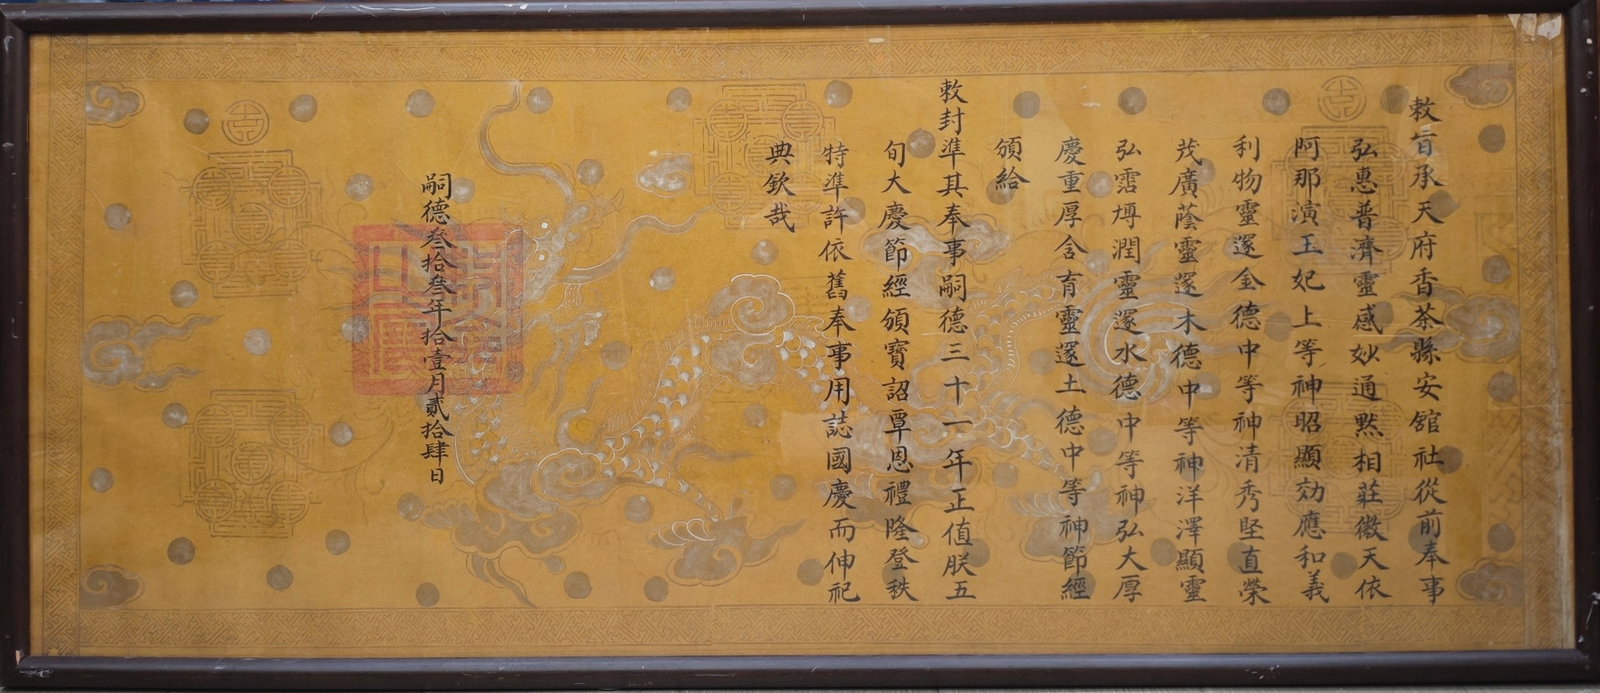 敕旨承天府香茶縣安舘社從前奉事
弘惠普濟靈感妙通默相莊徽天依
阿那演玉妃上等神昭顯効應和義
利物靈邃金德中等神清秀堅直榮
茂廣蔭靈邃木德中等神洋澤顯靈
弘霑博潤靈邃水德中等神弘大厚
慶重厚含育靈邃土德中等神節經
頒給
敕封準其奉事嗣德三十一年正值朕五
旬大慶節經頒寶詔覃恩禮隆登秩
特準許依舊奉事用誌國慶而伸祀
典欽哉
嗣德叁拾叁年拾壹月貳拾肆日